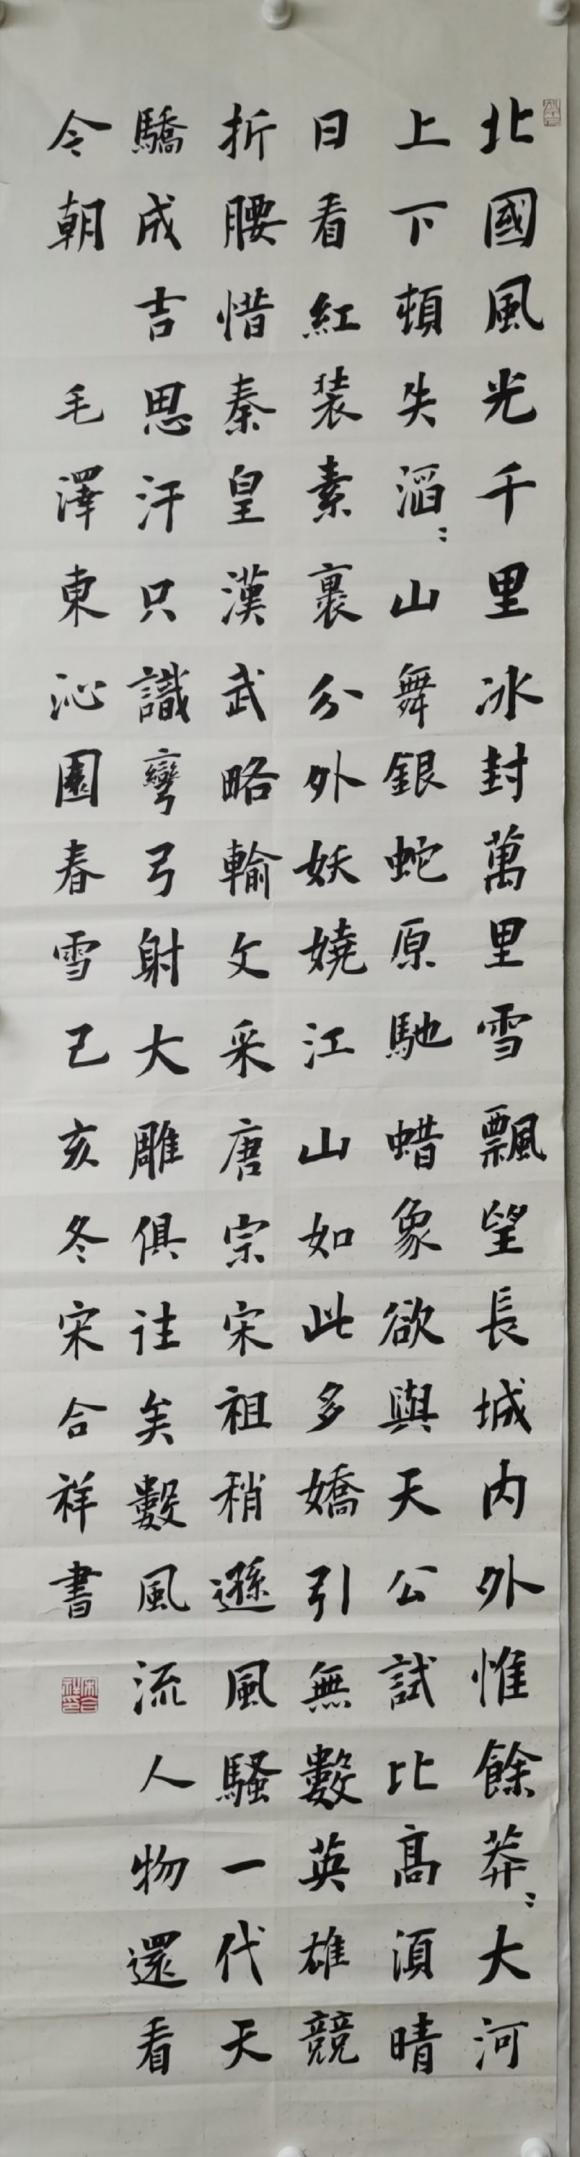 北國風光千里冰封萬里雪飄望長城內外惟餘莽〻大河
上下頓失滔〻山舞銀蛇原馳蜡象欲與天公試比高須晴
日看紅裝素裹分外妖嬈江山如此多嬌引無數英雄競
折腰惜秦皇漢武略輸文采唐宗宋祖稍遜風騷一代天
驕成吉思汗只識彎弓射大雕俱往矣數風流人物還看
今朝 毛澤東沁園春雪己亥冬宋合祥書